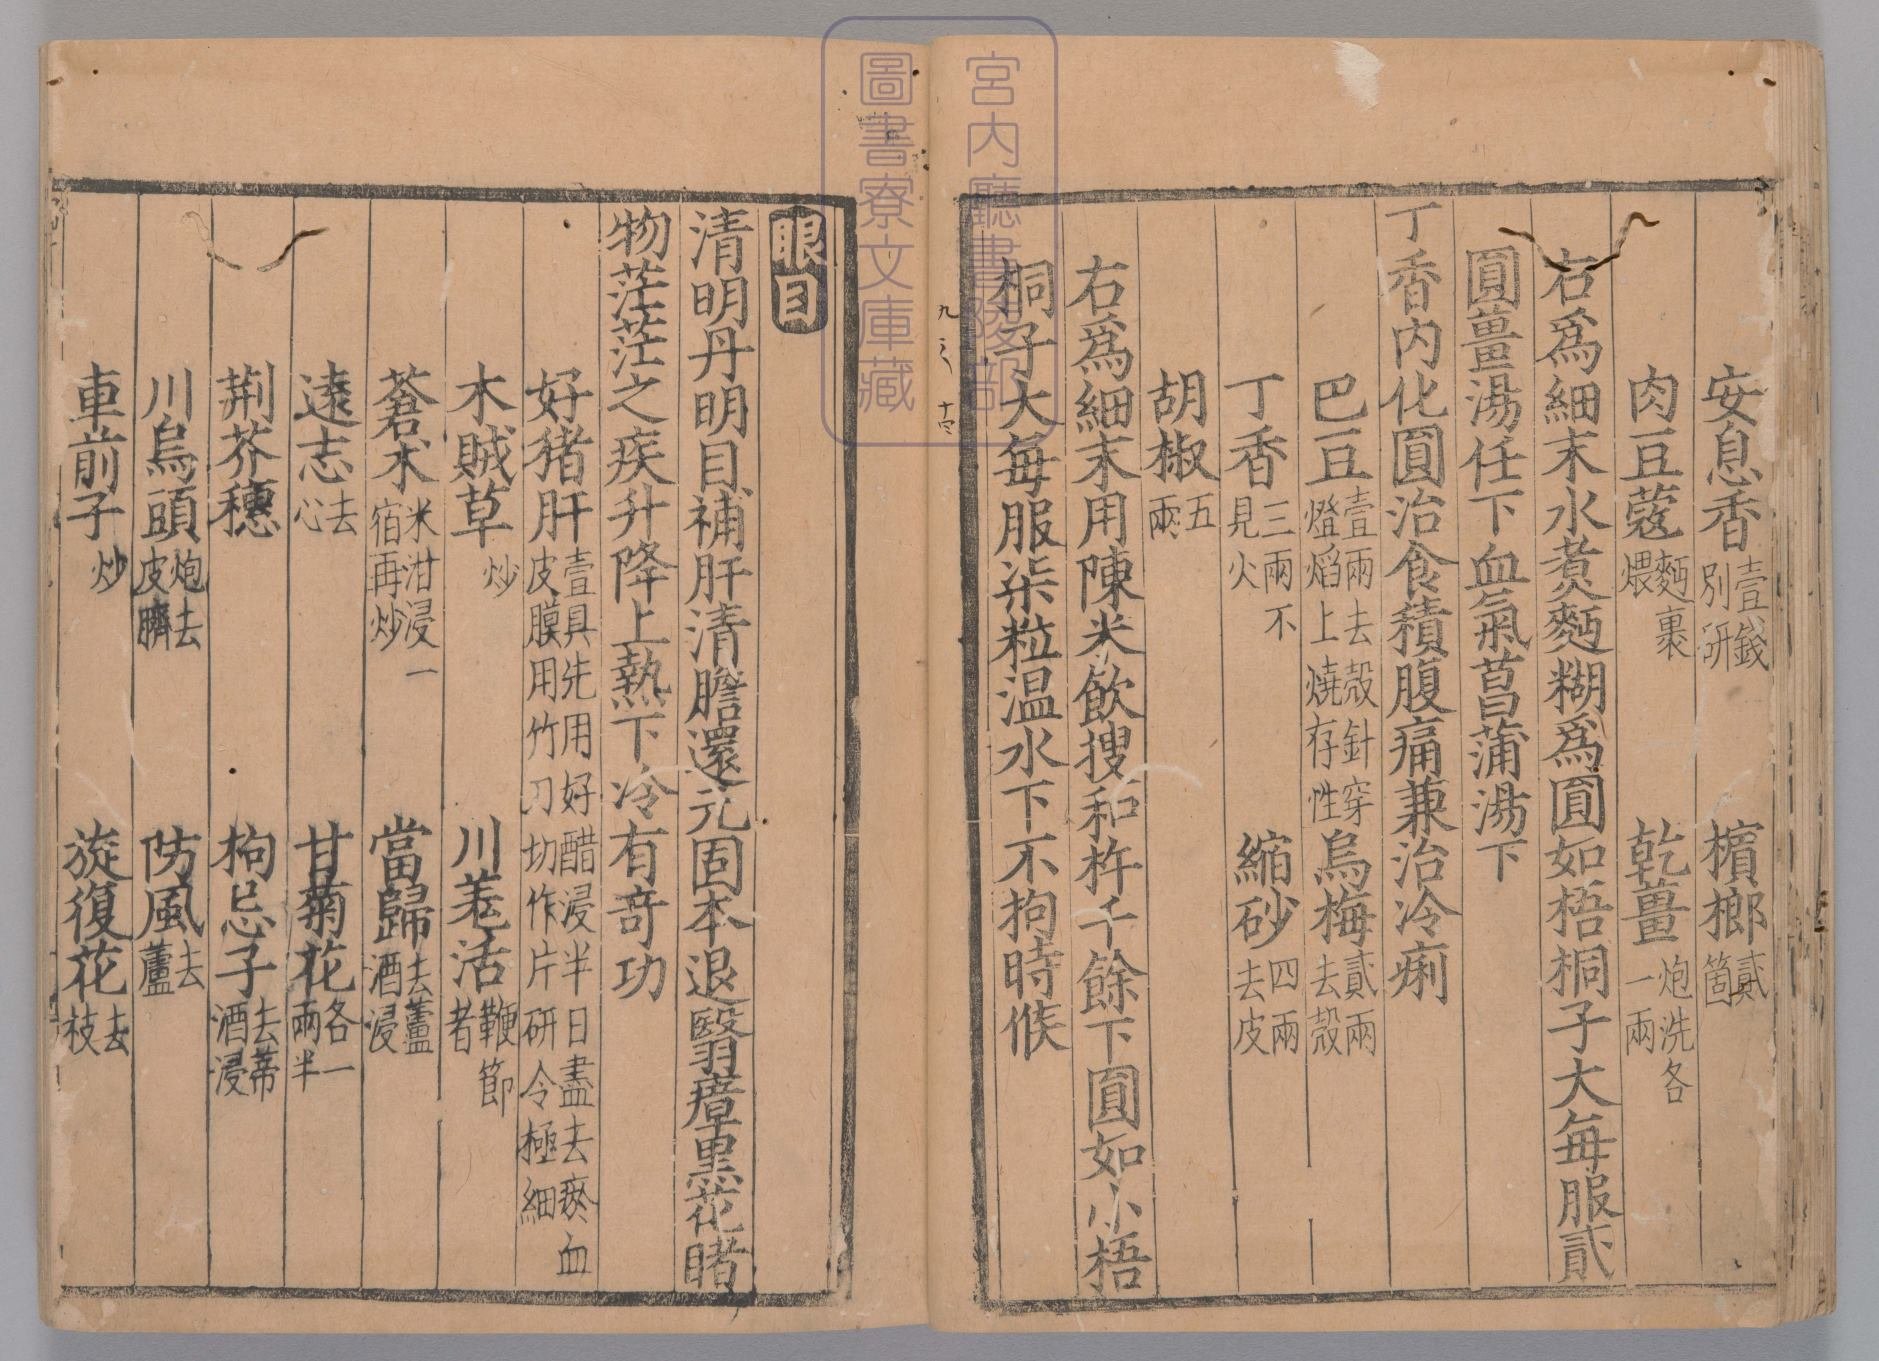 安息香壹錢別研　檳榔貳箇
肉豆蔻麪裹煨　乾薑炮洗各一兩
右爲細末水煮麪糊爲圓如梧桐子大每服貳
圓薑湯任下血氣菖蒲湯下
丁香內化圓治食積腹痛兼治冷痢
巴豆壹兩去殼針穿燈焰上燒存性　烏梅貳兩去殼
丁香三兩不見火　縮砂四兩去皮
胡椒五兩
右爲細末用陳米飲搜和杵千餘下圓如小梧
桐子大每服柒粒温水下不拘時候
眼目
清明丹明目補肝清膽還元固本退翳瘴黑花睹
物茫茫之疾升降上熱下冷有奇功
好猪肝壹具先用好醋浸半日盡去瘀血皮膜用竹刀切作片研令極細
木賊草炒　川羌活鞭節者
蒼朮米泔浸一宿再炒　當歸去蘆酒浸
遠志去心　甘菊花各一兩半
荆芥穗　枸杞子去蒂酒浸
川烏頭炮去皮臍　防風去蘆
車前子炒　旋復花去枝
宮內廳書陵部
圖書寮文庫藏